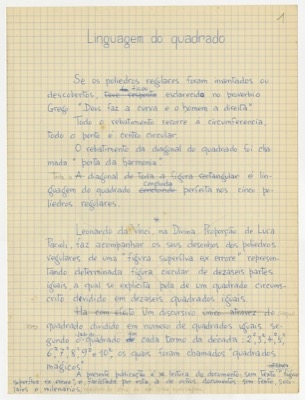 1
Linguagem do quadrado
Se os poliedros regulares foram inventados ou
descobertos, fica esclarecido no proverbio
Grego "Deus faz a curva e o homem a direita"
Todo o rebatimento recorre á circumferencia,
todo o ponto é centro circular.
O rebatimento da diagonal do quadrado foi cha
mada "porta da harmonia"
A diagonal de toda a figura rectangular é lin-
guagem do quadrado perfeita nos cinco po-
liedros regulares.
*
Leonardo da Vinci, na Divina Proporção de Luca
Pacioli, faz acompanhar os seus desenhos dos poliedros
regulares de uma "figura superflua ex errore" represen-
tando determinada figura circular de dezaseis partes
iguais, a qual se explicita pela de um quadrado circums-
crito dividido em dezaseis quadrados iguais.
Ha com efeito um discursivo unico atravez do
quadrado dividido em numero de quadrados iguais se-
gundo o quadrado de cada termo da decada: 2², 3², 4², 5²,
6², 7², 8², 9² e 10², os quais foram chamados "quadrados
magicos".
A presente publicação é a leitura do documento sem texto "figura
superflua ex errore", e, variedade por esta, a de outros documentos sem texto, seculares
e milenarios.